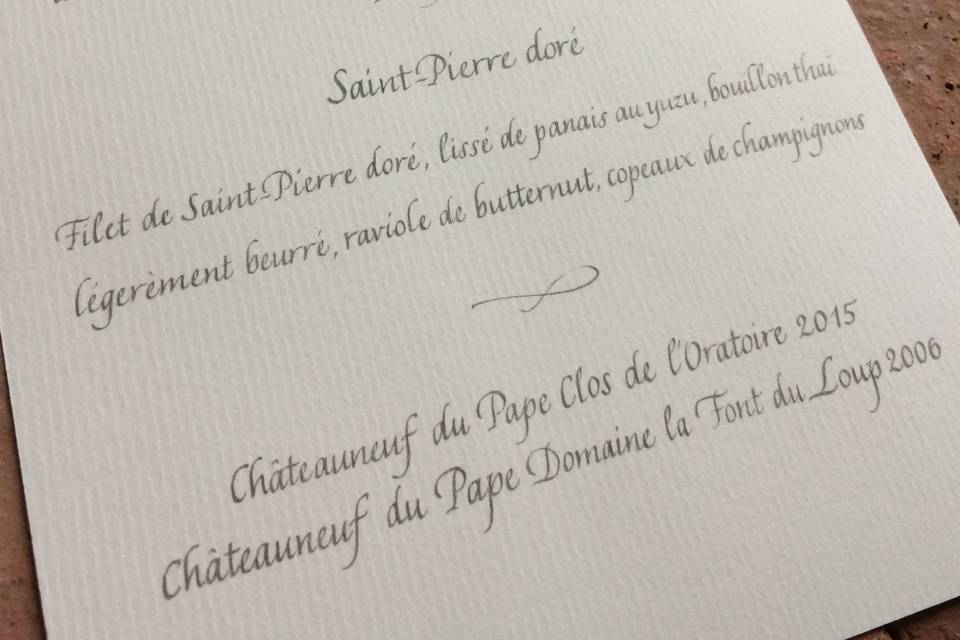 Saint-Pierre doré
Filet de Saint-Pierre doré, lissé de panais au yuzu, bouillon thaï
légèrement beurré, raviole de butternut, copeaux de champignons
Châteauneuf du Pape Clos de l'Oratoire 2015
Châteauneuf du Pape Domaine la Font du Loup 2006